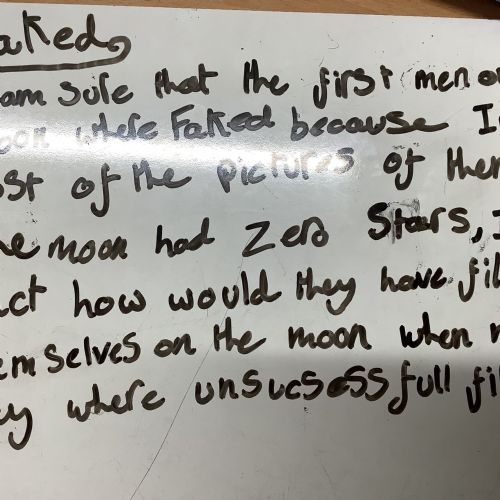 aked
am sure that the first men o
oon where Faked because I
ost of the pictures of them
he moon had Zero Stars, I
act how would they have fil
emselves on the moon when
ey where unsucsessfull fil